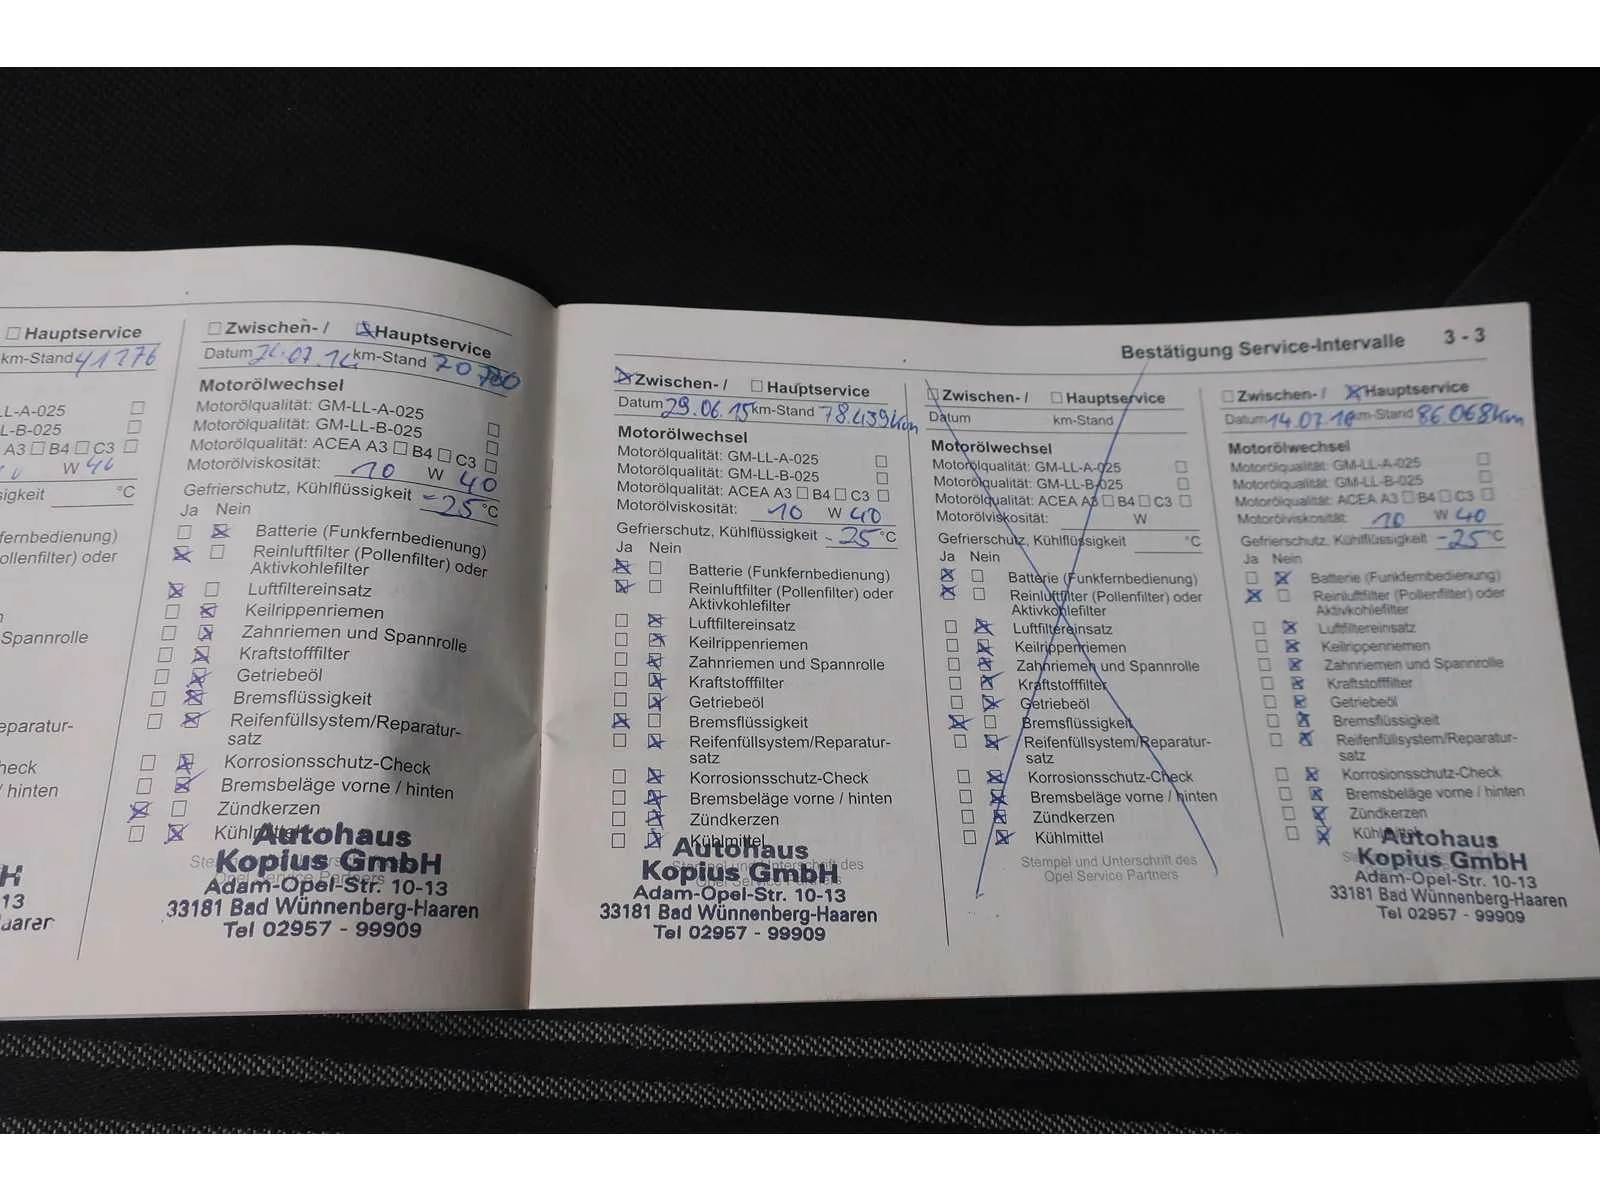 Hauptservice
km-Stand 41276
LL-A-025
L-B-025
A3 B4 C3
W 40
sigkeit °C
fernbedienung)
ollenfilter) oder
Spannrolle
eparatur-
heck
/ hinten
H
13
aaren
Zwischen- / Hauptservice
Datum km-Stand
Motorölwechsel
Motorölqualität: GM-LL-A-025
Motorölqualität: GM-LL-B-025
Motorölqualität: ACEA A3 B4 C3
Motorölviskosität: 10 W 40
Gefrierschutz, Kühlflüssigkeit -25 °C
Ja Nein
Batterie (Funkfernbedienung)
Reinluftfilter (Pollenfilter) oder
Aktivkohlefilter
Luftfiltereinsatz
Keilrippenriemen
Zahnriemen und Spannrolle
Kraftstofffilter
Getriebeöl
Bremsflüssigkeit
Reifenfüllsystem/Reparatur-
satz
Korrosionsschutz-Check
Bremsbeläge vorne / hinten
Zündkerzen
Kühlmittel
Autohaus
Kopius GmbH
Adam-Opel-Str. 10-13
33181 Bad Wünnenberg-Haaren
Tel 02957 - 99909
Bestätigung Service-Intervalle 3 - 3
Zwischen- / Hauptservice
Datum 29.06.15 km-Stand 78.439km
Motorölwechsel
Motorölqualität: GM-LL-A-025
Motorölqualität: GM-LL-B-025
Motorölqualität: ACEA A3 B4 C3
Motorölviskosität: 10 W 40
Gefrierschutz, Kühlflüssigkeit -25 °C
Ja Nein
Batterie (Funkfernbedienung)
Reinluftfilter (Pollenfilter) oder
Aktivkohlefilter
Luftfiltereinsatz
Keilrippenriemen
Zahnriemen und Spannrolle
Kraftstofffilter
Getriebeöl
Bremsflüssigkeit
Reifenfüllsystem/Reparatur-
satz
Korrosionsschutz-Check
Bremsbeläge vorne / hinten
Zündkerzen
Kühlmittel
Stempel und Unterschrift des
Opel Service Partners
Autohaus
Kopius GmbH
Adam-Opel-Str. 10-13
33181 Bad Wünnenberg-Haaren
Tel 02957 - 99909
Zwischen- / Hauptservice
Datum km-Stand
Motorölwechsel
Motorölqualität: GM-LL-A-025
Motorölqualität: GM-LL-B-025
Motorölqualität: ACEA A3 B4 C3
Motorölviskosität: W
Gefrierschutz, Kühlflüssigkeit °C
Ja Nein
Batterie (Funkfernbedienung)
Reinluftfilter (Pollenfilter) oder
Aktivkohlefilter
Luftfiltereinsatz
Keilrippenriemen
Zahnriemen und Spannrolle
Kraftstofffilter
Getriebeöl
Bremsflüssigkeit
Reifenfüllsystem/Reparatur-
satz
Korrosionsschutz-Check
Bremsbeläge vorne / hinten
Zündkerzen
Kühlmittel
Stempel und Unterschrift des
Opel Service Partners
Zwischen- / Hauptservice
Datum km-Stand 86.068km
Motorölwechsel
Motorölqualität: GM-LL-A-025
Motorölqualität: GM-LL-B-025
Motorölqualität: ACEA A3 B4 C3
Motorölviskosität: 10 W 40
Gefrierschutz, Kühlflüssigkeit -25 °C
Ja Nein
Batterie (Funkfernbedienung)
Reinluftfilter (Pollenfilter) oder
Aktivkohlefilter
Luftfiltereinsatz
Keilrippenriemen
Zahnriemen und Spannrolle
Kraftstofffilter
Getriebeöl
Bremsflüssigkeit
Reifenfüllsystem/Reparatur-
satz
Korrosionsschutz-Check
Bremsbeläge vorne / hinten
Zündkerzen
Kühlmittel
Autohaus
Kopius GmbH
Adam-Opel-Str. 10-13
33181 Bad Wünnenberg-Haaren
Tel 02957 - 99909